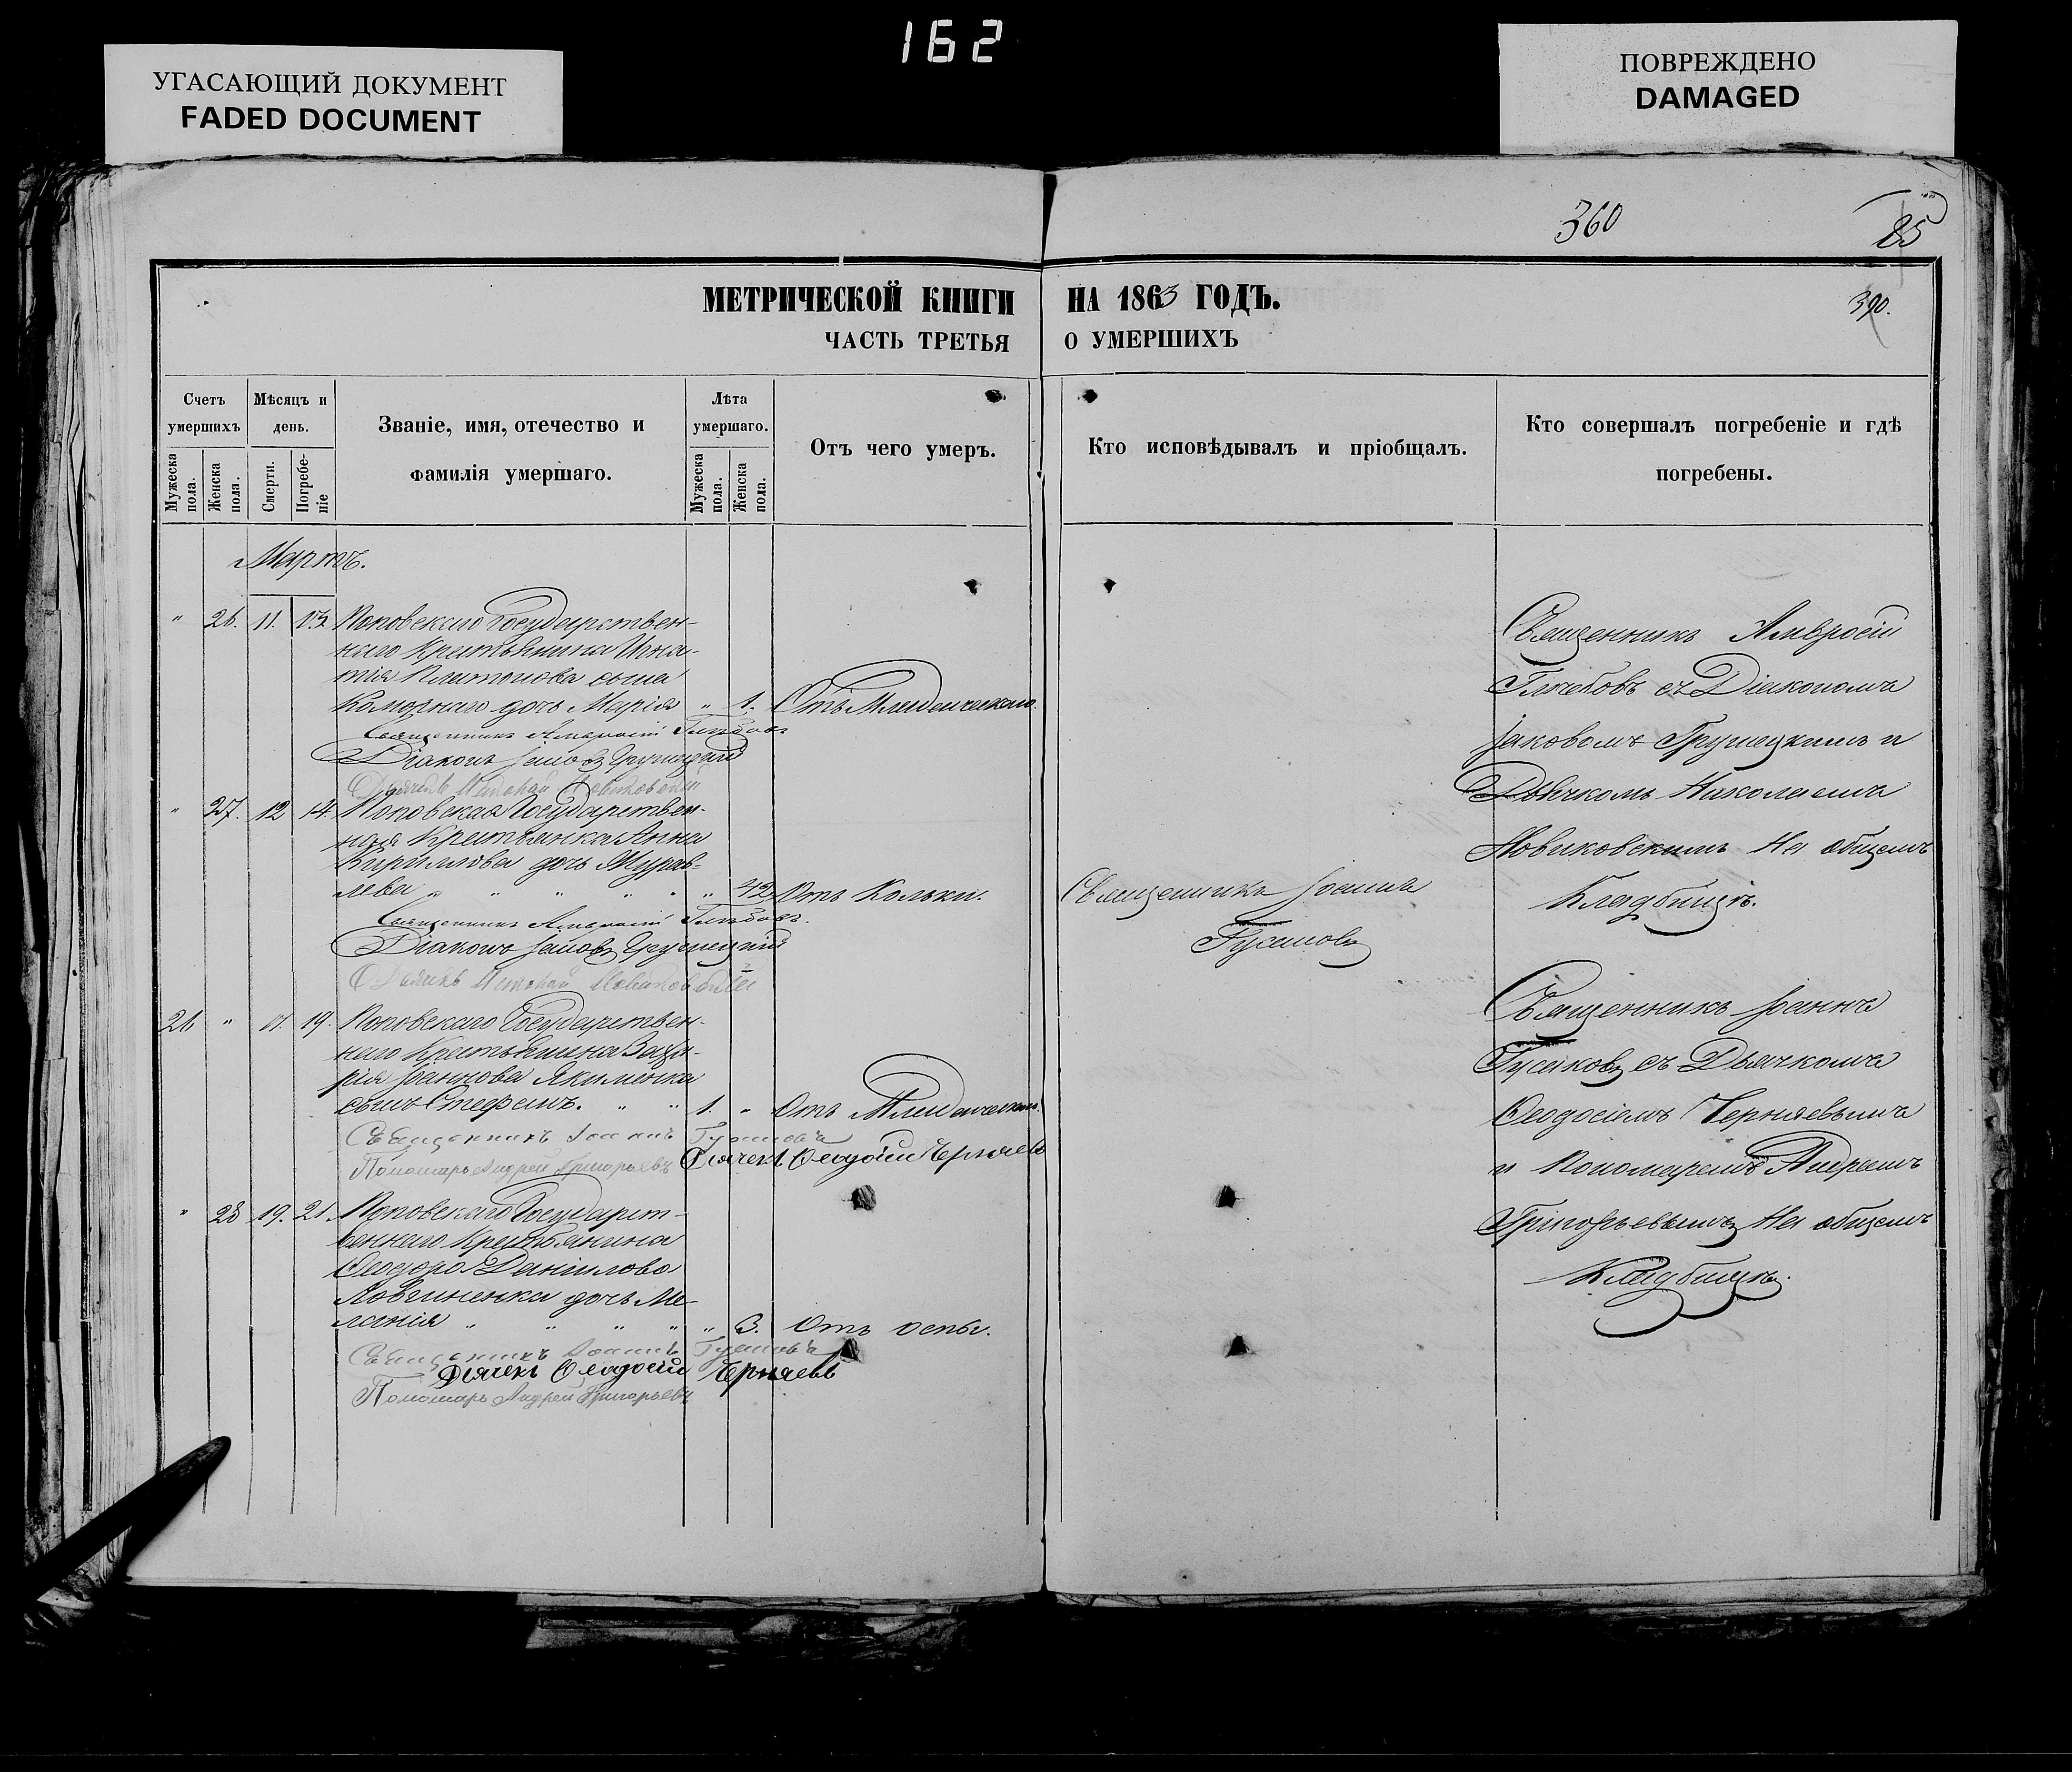 162
УГАСАЮЩИЙ ДОКУМЕНТ
FADED DOCUMENT
ПОВРЕЖДЕНО
DAMAGED
360
25
МЕТРИЧЕСКОЙ КНИГИ НА 1863 ГОДЪ.
390.
ЧАСТЬ ТРЕТЬЯ О УМЕРШИХЪ
Счетъ умершихъ
Мѣсяцъ и день.
Званіе, имя, отечество и фамилія умершаго.
Лѣта умершаго.
Отъ чего умеръ.
Кто исповѣдывалъ и пріобщалъ.
Кто совершалъ погребеніе и гдѣ погребены.
Мужеска пола.
Женска пола.
Смерти.
Погребеніе
Мужеска пола.
Женска пола.
Мартъ.
" 26. 11. 13. Поповскаго Государствен-
наго Крестьянина Игна-
тія Платонова сына
Коморнаго дочь Марія " 1. Отъ Младенческаго.
Священникъ Амвросій Глѣбовъ
Діаконъ Іаковъ Грушецкій
Дьячекъ Николай Новиковскій
Священникъ Амвросій
Глѣбовъ съ Діакономъ
Іаковомъ Грушецкимъ и
Дьячкомъ Николаемъ
Новиковскимъ На общемъ
Кладбищѣ.
" 27. 12 14. Поповская Государствен-
ная Крестьянка Анна
Кириллова дочь Журав-
лева " " " " " " 42. Отъ Кольки.
Священникъ Іоаннъ
Гусаковъ
Священникъ Амвросій Глѣбовъ.
Діаконъ Іаковъ Грушецкій
Дьячекъ Николай Новиковскій
26 " 19. Поповскаго Государствен-
наго Крестьянина Заха-
рія Іоаннова Якименка
сынъ Стефанъ. " " 1. " Отъ Младенческаго.
Священникъ Іоаннъ Гусаковъ
Пономарь Андрей Григорьевъ Дьячекъ Ѳеодосій Черняевъ
Священникъ Іоаннъ
Гусаковъ съ Дьячкомъ
Ѳеодосіемъ Черняевымъ
и Пономаремъ Андреемъ
Григорьевымъ На общемъ
Кладбищѣ.
" 28 19. 21. Поповскаго Государст-
веннаго Крестьянина
Ѳеодора Данилова
дочь Ме-
ланія " " " " " 3. Отъ оспы.
Священникъ Іоаннъ Гусаковъ
Дьячекъ Ѳеодосій Черняевъ
Пономарь Андрей Григорьевъ